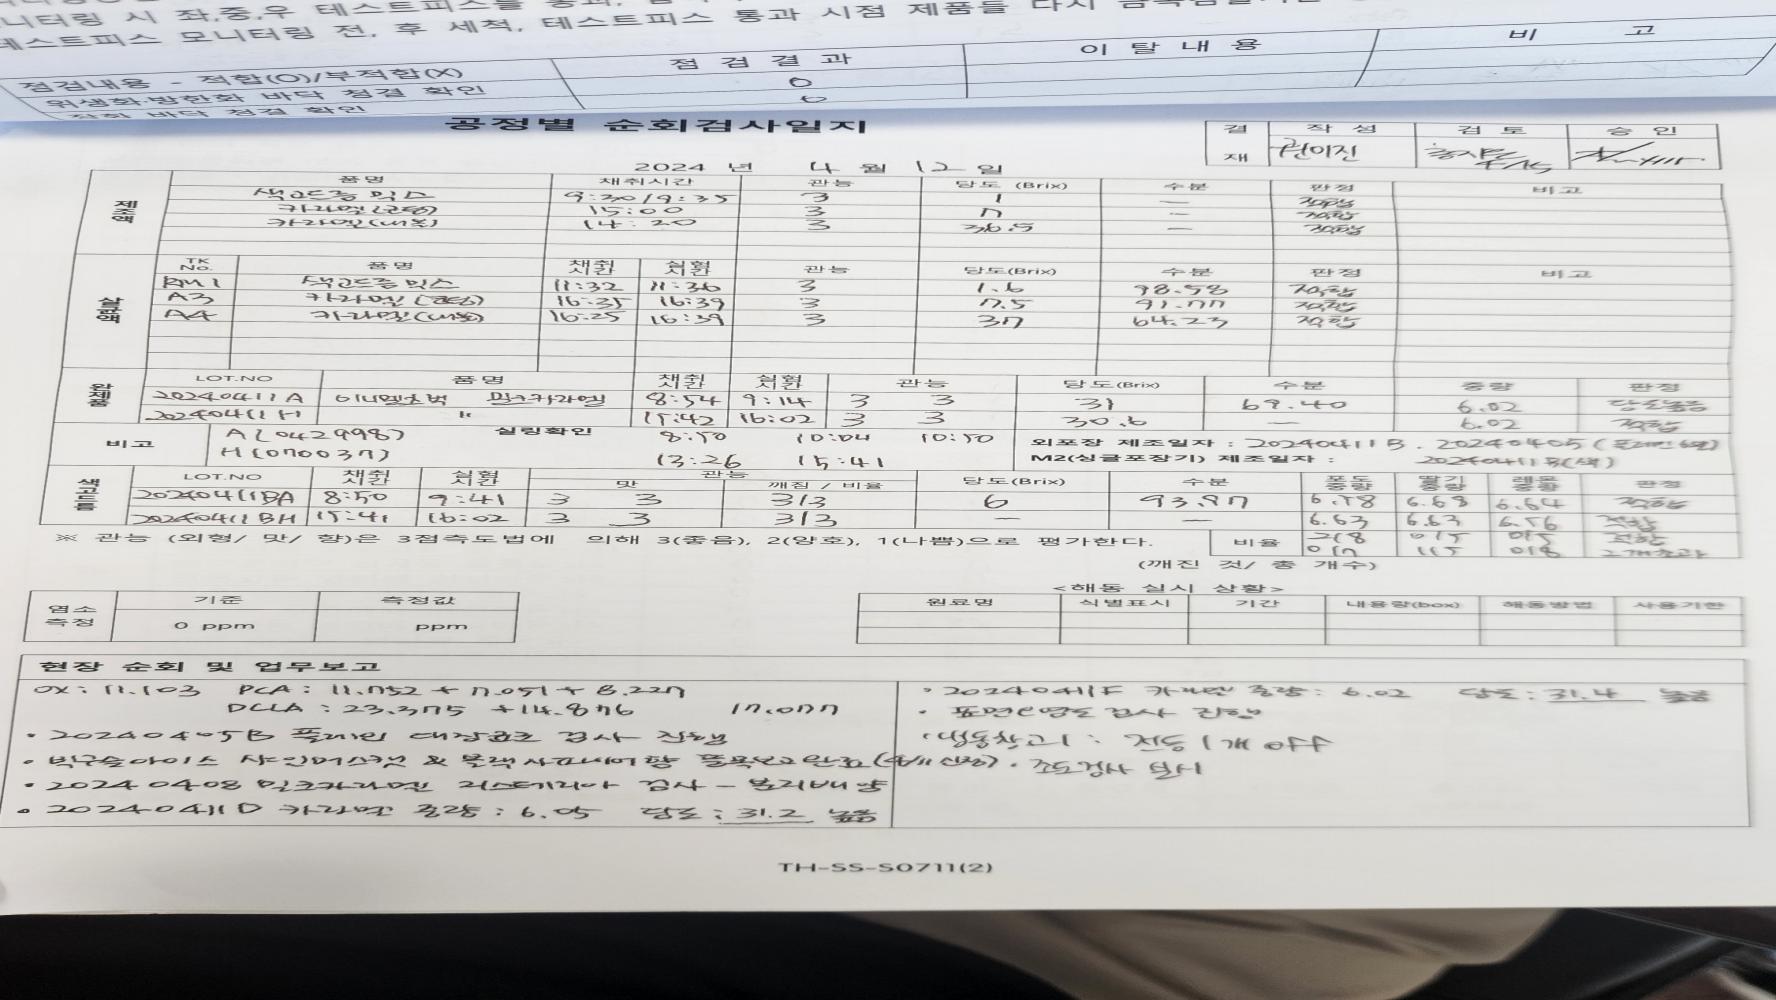 니터링 시 좌,중,우 테스트피스를 통과,
테스트피스 모니터링 전, 후 세척, 테스트피스 통과 시점 제품들 다시
점검내용 - 적합(O)/부적합(X) 점 검 결 과 이 탈 내 용 비 고
위생화·방한화 바닥 청결 확인 O
바닥 청결 확인 O
공정별 순회검사일지
결재 작 성 검 토 승 인
권이진 4/15
2024 년 4 월 12 일
제조액 품 명 채취시간 관능 당도 (Brix) 수분 판정 비고
색고드름 믹스 9:30/9:35 3 1 — 적합
카라멜(코팅) 15:00 3 7 — 적합
카라멜(내용) 14:20 3 36.5 — 적합
살균액 TK No. 품 명 채취시간 실험시간 관능 당도(Brix) 수분 판정 비고
RM1 색고드름 믹스 11:32 11:36 3 1.6 98.58 적합
A3 카라멜(코팅) 16:35 16:39 3 7.5 91.77 적합
A4 카라멜(내용) 16:25 16:39 3 37 64.23 적합
완제품 LOT.NO 품 명 채취시간 실험시간 관능 당도(Brix) 수분 중량 판정
20240411A 밀크카라멜 8:54 9:14 3 3 31 69.40 6.02 당도높음
20240411H 〃 15:42 16:02 3 3 30.6 6.02 적합
비고 A(042998) 실링확인 8:50 10:04 10:50 외포장 제조일자 : 20240411B. 20240405(
H(070037) 13:26 15:41 M2(싱글포장기) 제조일자 : 20240411B(색)
색고드름 LOT.NO 채취시간 실험시간 관능 맛 깨짐 / 비율 당도(Brix) 수분 포도중량 딸기중량 레몬중량 판정
20240411BA 8:50 9:41 3 3 3/3 6 93.97 6.78 6.63 6.64 적합
20240411BH 15:41 16:02 3 3 3/3 — — 6.63 6.63 6.76 적합
※ 관능 (외형/ 맛/ 향)은 3점측도법에 의해 3(좋음), 2(양호), 1(나쁨)으로 평가한다.
비율 2/8 0/5 0/5 적합
0/7 1/5 0/8 2개초과
(깨진 것/ 총 개수)
<해동 실시 상황>
염소측정 기준 측정값
0 ppm ppm
원료명 식별표시 기간 내용량(box) 해동방법 사용기한
현장 순회 및 업무보고
OX: 11.103 PCA: 11.752 + 7.051 + 8.227
DCLA : 23.375 + 14.876 17.077
• 20240405B 플레인 대장균군 검사 진행
• 박구슬아이스 샤인머스캣 & 블랙사파이어향 품목보고완료(4/11 신청)
• 20240408 밀크카라멜 리스테리아 검사 - 분리배양
• 20240411D 카라멜 중량 : 6.05 당도 : 31.2 높음
• 20240411F 카라멜 중량 : 6.02 당도 : 31.4 높음
• 표면오염도 검사 진행
(냉동창고) : 전등 1개 off
• 조도검사 실시
TH-SS-S0711(2)